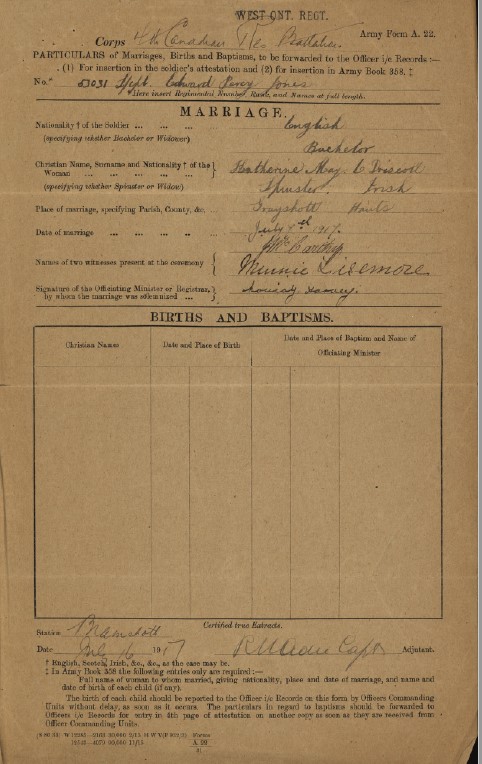 WEST ONT. REGT.
Corps 4th Canadian Res Battalion Army Form A. 22.
PARTICULARS of Marriages, Births and Baptisms, to be forwarded to the Officer i/c Records :—
(1) For insertion in the soldier's attestation and (2) for insertion in Army Book 358. ‡
No.* 53031 Edward Percy Jones
*Here insert Regimental Number, Rank, and Names at full length.
MARRIAGE.
Nationality † of the Soldier ... ... ... English
(specifying whether Bachelor or Widower) Bachelor
Christian Name, Surname and Nationality † of the Woman ... ... ... ... ... } Katherine May O'Driscoll
(specifying whether Spinster or Widow) Spinster. Irish
Place of marriage, specifying Parish, County, &c. ... Grayshott Hants
Date of marriage ... ... ... ... ... July 4th 1917.
J McCarthy
Names of two witnesses present at the ceremony { Minnie Livemore
Signature of the Officiating Minister or Registrar, by whom the marriage was solemnized ... ... }
BIRTHS AND BAPTISMS.
Christian Names Date and Place of Birth Date and Place of Baptism and Name of Officiating Minister
Certified true Extracts.
Station Bramshott
Date July 16 1917 Capt Adjutant.
† English, Scotch, Irish, &c., &c., as the case may be.
‡ In Army Book 358 the following entries only are required :—
Full name of woman to whom married, giving nationality, place and date of marriage, and name and
date of birth of each child (if any).
The birth of each child should be reported to the Officer i/c Records on this form by Officers Commanding
Units without delay, as soon as it occurs. The particulars in regard to baptisms should be forwarded to
Officers i/c Records for entry in 4th page of attestation on another copy as soon as they are received from
Officer Commanding Units.
Forms
A. 22